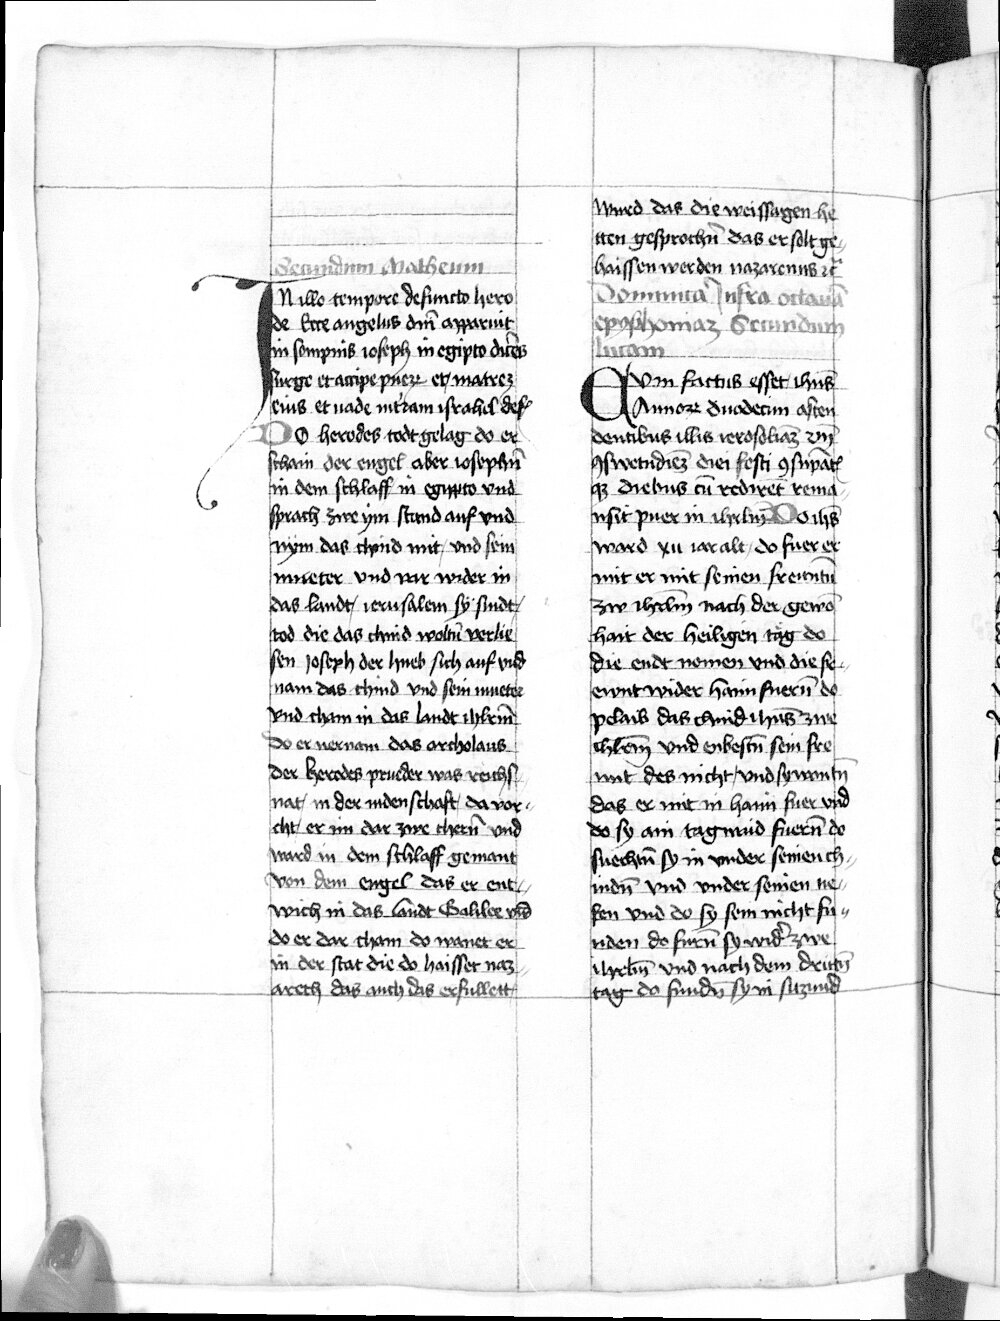 Secundum Matheum
IN illo tempore defuncto hero
de Ecce angelus dn̄i apparuit
in sompnis ioseph in egipto dicēs
surge et accipe puerꝫ et matreꝫ
eius et uade in t̄ram israhel def̄
DO herodes todt gelag do er
schain der engel aber iosephn̄
in dem schlaff in egypto vnd
sprach zwe ym stand auf vnd
nym das chind mit / vnd sein
mueter vnd var wider in
das landt / ierusalem sy sindt /
tod die das chind woltn̄ verlie
sen ioseph der hueb sich auf vnd
nam das chind vnd sein mueter
vnd cham in das landt ihrlm̄
do er vernam das archolaus
der herodes prueder was reichs⸗
nat / in der iudenschaft / da vor⸗
cht / er im dar zwe chern̄ vnd
ward in dem schlaff gemant
von dem engel das er ent⸗
wich in das landt Galilee vnd
do er dar cham do wanet er
in der stat die do haisset naz⸗
areth das auch das erfullett
wurd das die weissagen he
tten gesprochn̄ das er solt ge⸗
haissen werden nazarenus ꝛc̄
Dominica Infra octauā
epyphoniaꝫ Secundum
lucam
CVm factus esset ihūs
Annorꝫ duodecim asten
dentibus illis ierosolimaꝫ
ꝯswetudieꝫ diei festi ꝯsūpat̄
qꝫ diebus cū rediret rema⸗
nsit puer in ihrlm̄ DO ihs̄
ward xii iar alt / do fuer er
mit er mit seinen freuntn̄
zw ihrlm̄ nach der gewō
hait der heiligen tag do
die endt nomen vnd die se⸗
ewnt wider haim fuern̄ do
pelaib das chind ihūs zwe
ihrlm̄ vnd enbestn̄ sein fre
wnt des nicht / vnd sy wantn̄
das er mit in haim fuer vnd
do sy ain tagwaid fuern̄ do
suechtn̄ sy in vnder seinen ch⸗
indn̄ vnd vnder seinen ne⸗
fen vnd do sy sein nicht fu⸗
nden do furn̄ sy wid̄ zwe
ihrlm̄ vnd nach dem drittn̄
tag do fundn̄ sy in sitzund